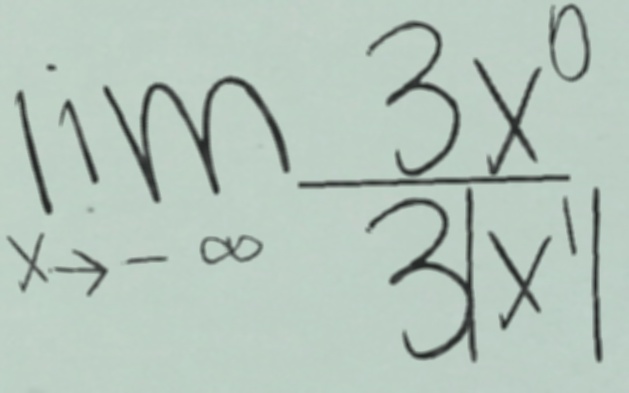 lim 3x⁰
x→-∞ 3|x¹|